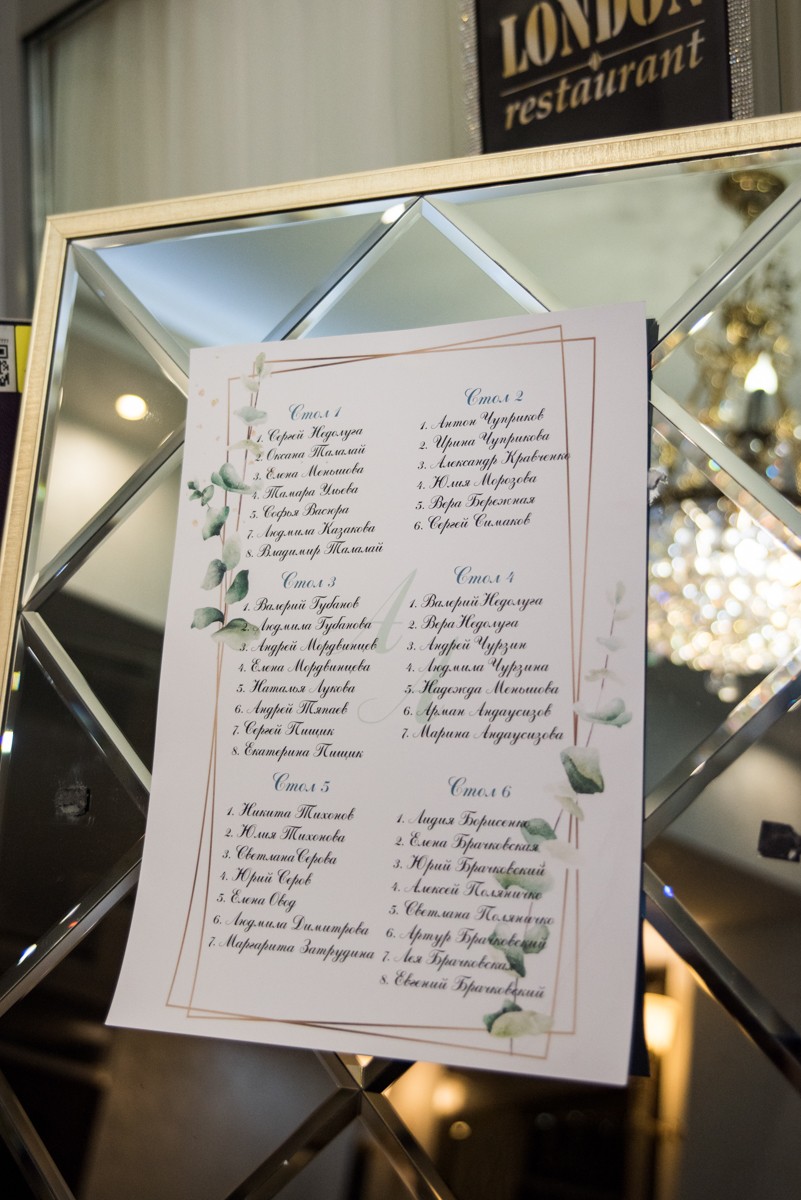 LONDON
restaurant
Стол 1
1. Сергей Недолуга
2. Оксана Талалай
3. Елена Меньшова
4. Тамара Ульева
5. Софья Васюра
7. Людмила Казакова
8. Владимир Талалай
Стол 2
1. Антон Чуприков
2. Ирина Чуприкова
3. Александр Кравченко
4. Юлия Морозова
5. Вера Бережная
6. Сергей Симаков
Стол 3
1. Валерий Губанов
2. Людмила Губанова
3. Андрей Мордвинцев
4. Елена Мордвинцева
5. Наталья Лукова
6. Андрей Тяпаев
7. Сергей Пищик
8. Екатерина Пищик
Стол 4
1. Валерий Недолуга
2. Вера Недолуга
3. Андрей Чурзин
4. Людмила Чурзина
5. Надежда Меньшова
6. Арман Андаусизов
7. Марина Андаусизова
Стол 5
1. Никита Тихонов
2. Юлия Тихонова
3. Светлана Серова
4. Юрий Серов
5. Елена Овод
6. Людмила Димитрова
7. Маргарита Затрудина
Стол 6
1. Лидия Борисенко
2. Елена Брачковская
3. Юрий Брачковский
4. Алексей Поляничко
5. Светлана Поляничко
6. Артур Брачковский
7. Лея Брачковская
8. Евгений Брачковский